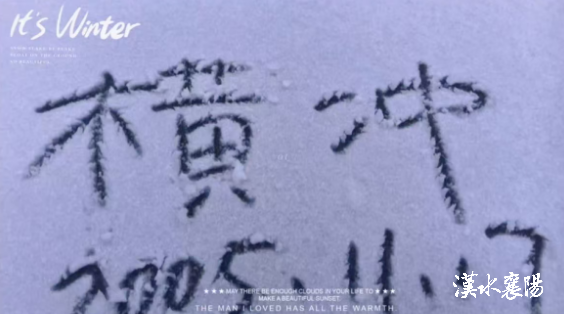 It's Winter
横冲
2005.11.17
★★★ MAY THERE BE ENOUGH CLOUDS IN YOUR LIFE TO ★★★
MAKE A BEAUTIFUL SUNSET
THE MAN I LOVED HAS ALL THE WARMTH
漢水襄陽